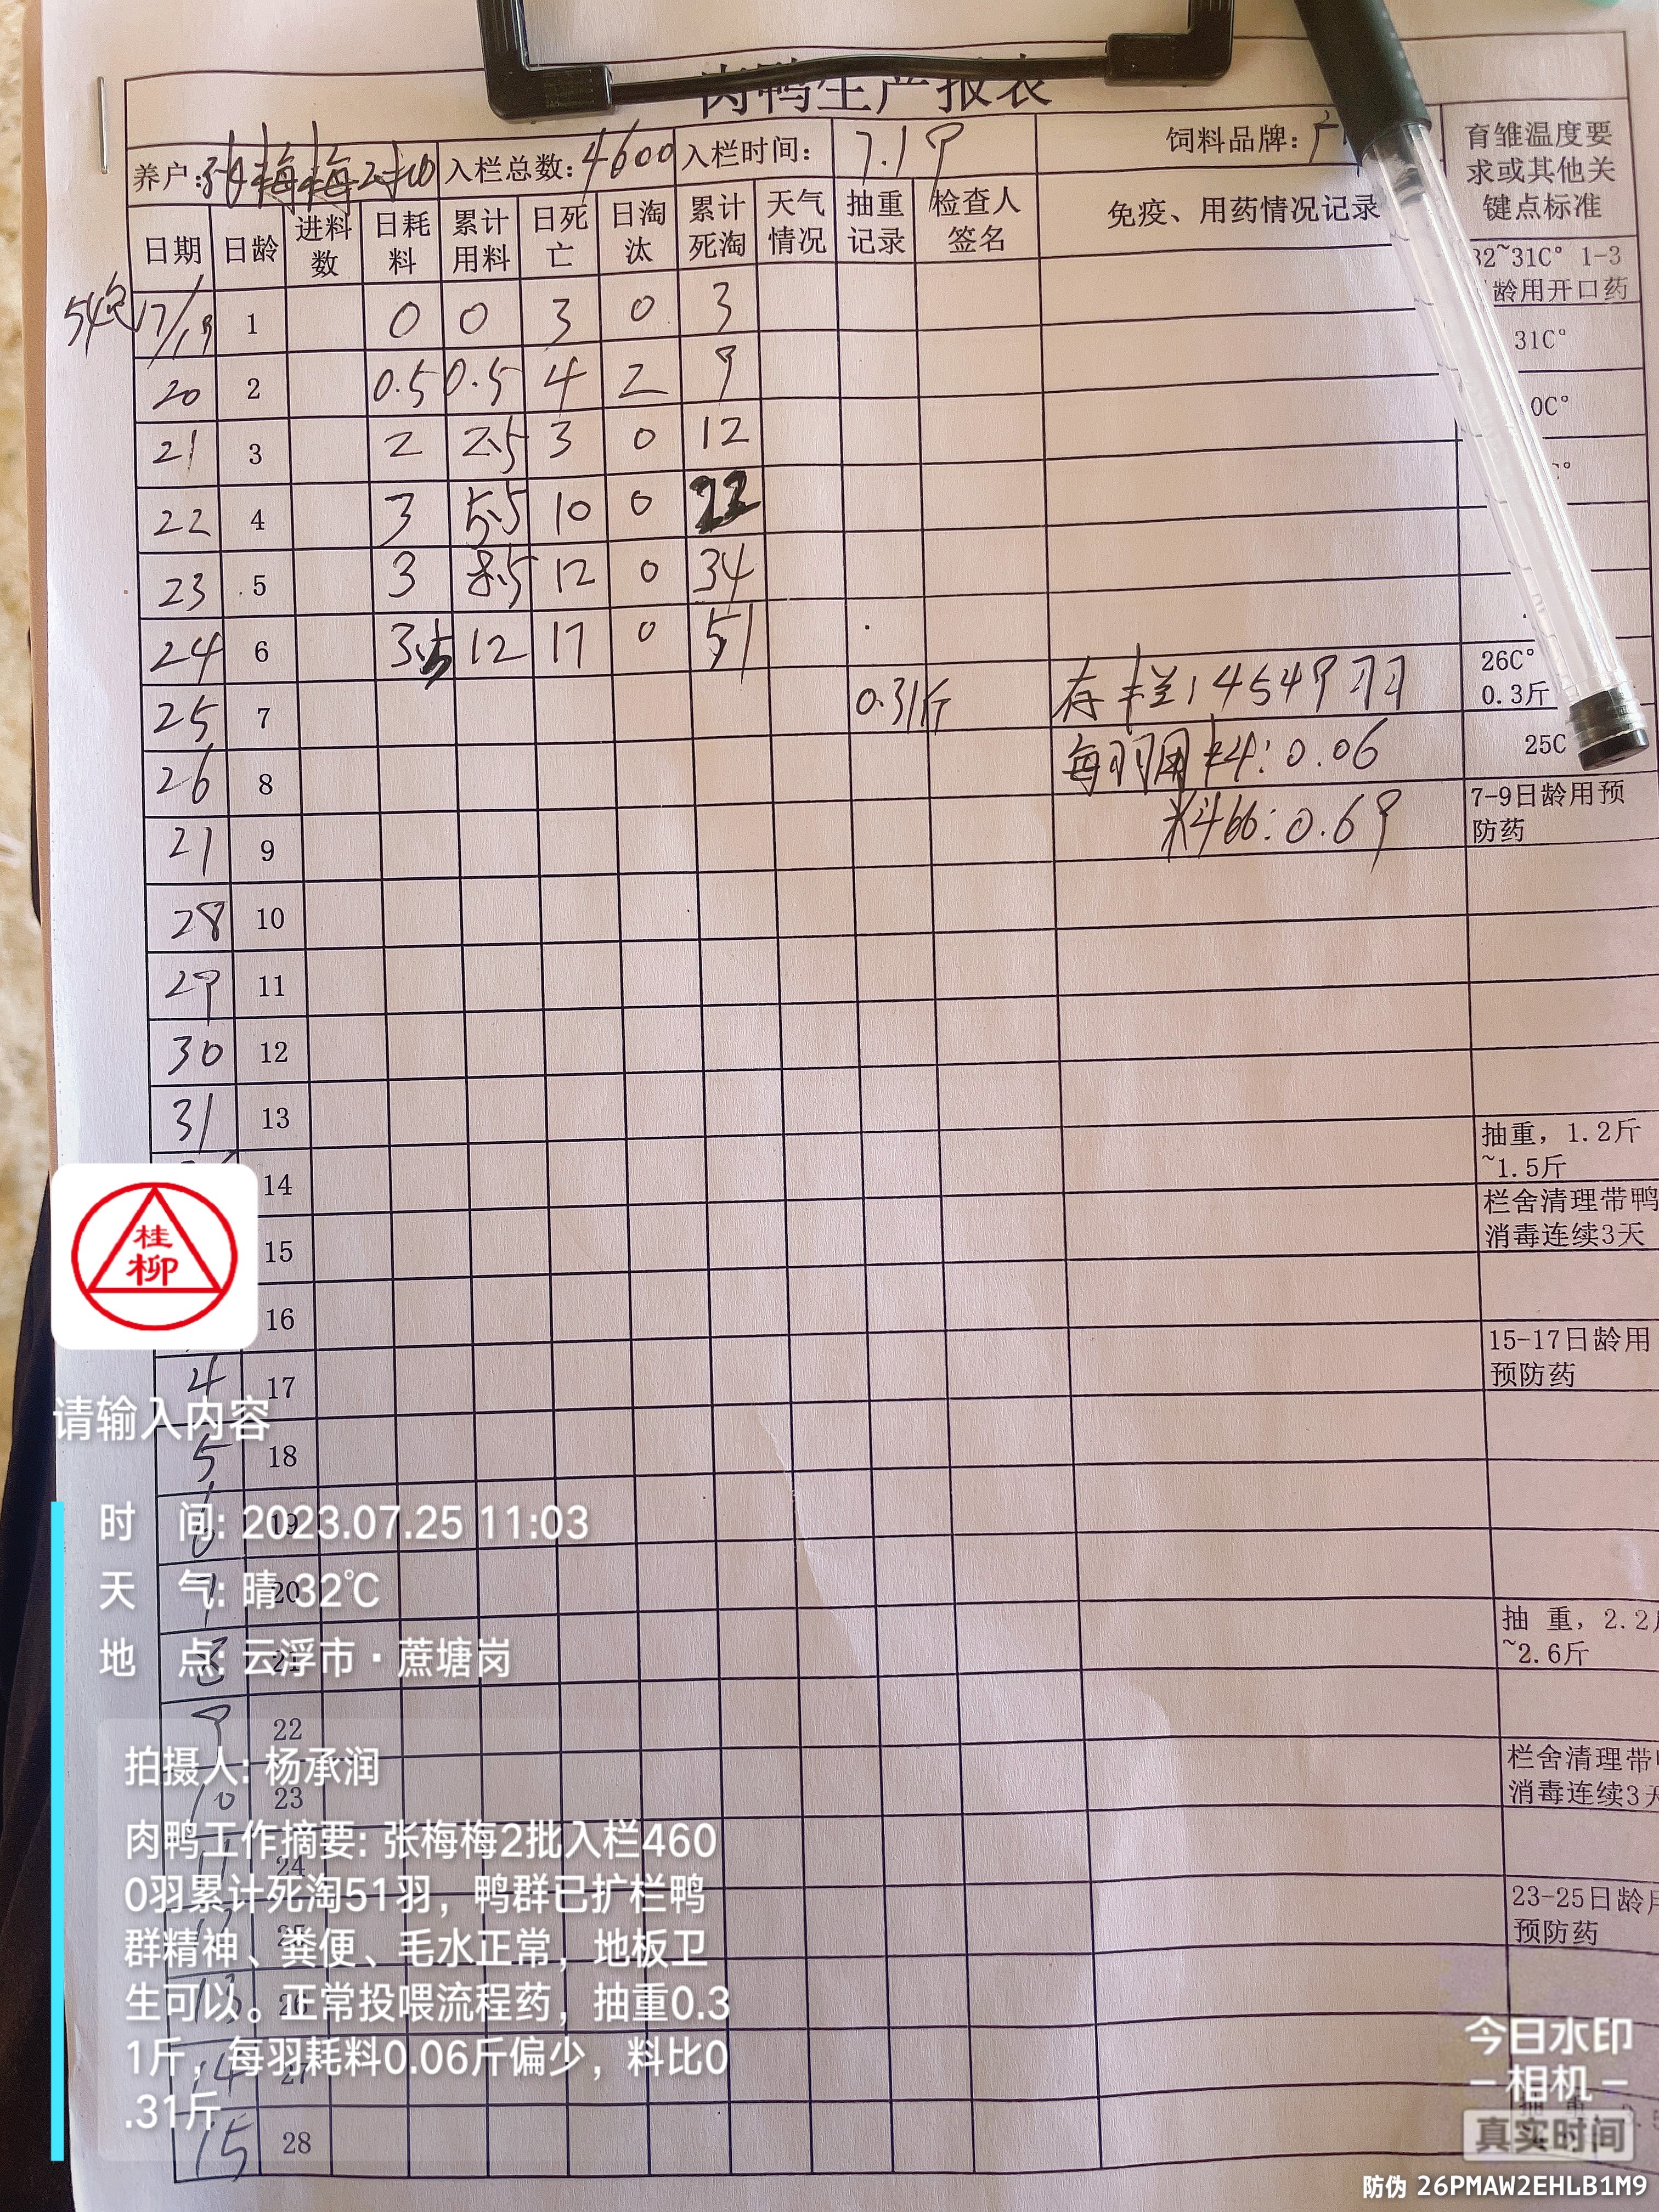 肉鸭生产报表
养户:张梅梅2批 入栏总数:4600 入栏时间: 7.19 饲料品牌: 育雏温度要求或其他关键点标准
日期 日龄 进料数 日耗料 累计用料 日死亡 日淘汰 累计死淘 天气情况 抽重记录 检查人签名 免疫、用药情况记录
54包 7/19 1 0 0 3 0 3 32~31C° 1-3
龄用开口药
20 2 0.5 0.5 4 2 9 31C°
21 3 2 2.5 3 0 12 0C°
22 4 3 5.5 10 0 22 C°
23 5 3 8.5 12 0 34
24 6 3.5 12 17 0 51
25 7 0.31斤 存栏:4549羽 26C° 0.3斤
26 8 每羽用料:0.06 25C
27 9 料比:0.69 7-9日龄用预防药
28 10
29 11
30 12
31 13
14 抽重，1.2斤~1.5斤
15 栏舍清理带鸭消毒连续3天
16
4 17 15-17日龄用预防药
5 18
6 19
7 20
8 21 抽 重，2.2斤~2.6斤
9 22
10 23 栏舍清理带
消毒连续3天
11 24
12 25 23-25日龄用
预防药
13 26
14 27
15 28
桂
柳
请输入内容
时 间: 2023.07.25 11:03
天 气: 晴 32℃
地 点: 云浮市·蔗塘岗
拍摄人: 杨承润
肉鸭工作摘要: 张梅梅2批入栏460
0羽累计死淘51羽，鸭群已扩栏鸭
群精神、粪便、毛水正常，地板卫
生可以。正常投喂流程药，抽重0.3
1斤，每羽耗料0.06斤偏少，料比0
.31斤
今日水印
相机
真实时间
防伪 26PMAW2EHLB1M9